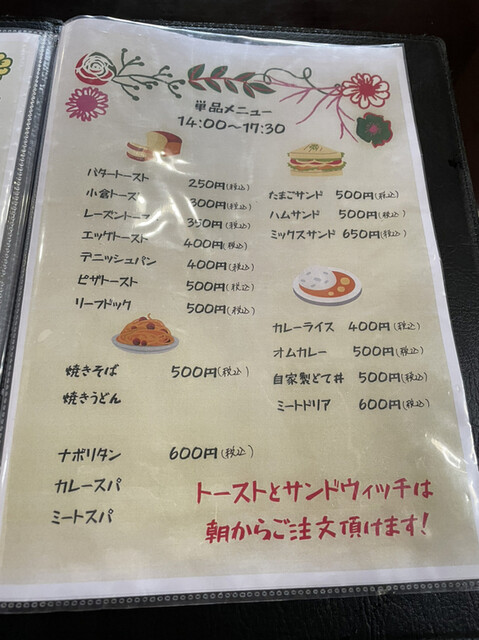 単品メニュー
14:00〜17:30
バタートースト 250円(税込)
小倉トースト 300円(税込)
レーズントースト 350円(税込)
エッグトースト 400円(税込)
デニッシュパン 400円(税込)
ピザトースト 500円(税込)
リーフドック 500円(税込)
焼きそば 500円(税込)
焼きうどん
ナポリタン 600円(税込)
カレースパ
ミートスパ
たまごサンド 500円(税込)
ハムサンド 500円(税込)
ミックスサンド 650円(税込)
カレーライス 400円(税込)
オムカレー 500円(税込)
自家製どて丼 500円(税込)
ミートドリア 600円(税込)
トーストとサンドウィッチは
朝からご注文頂けます!